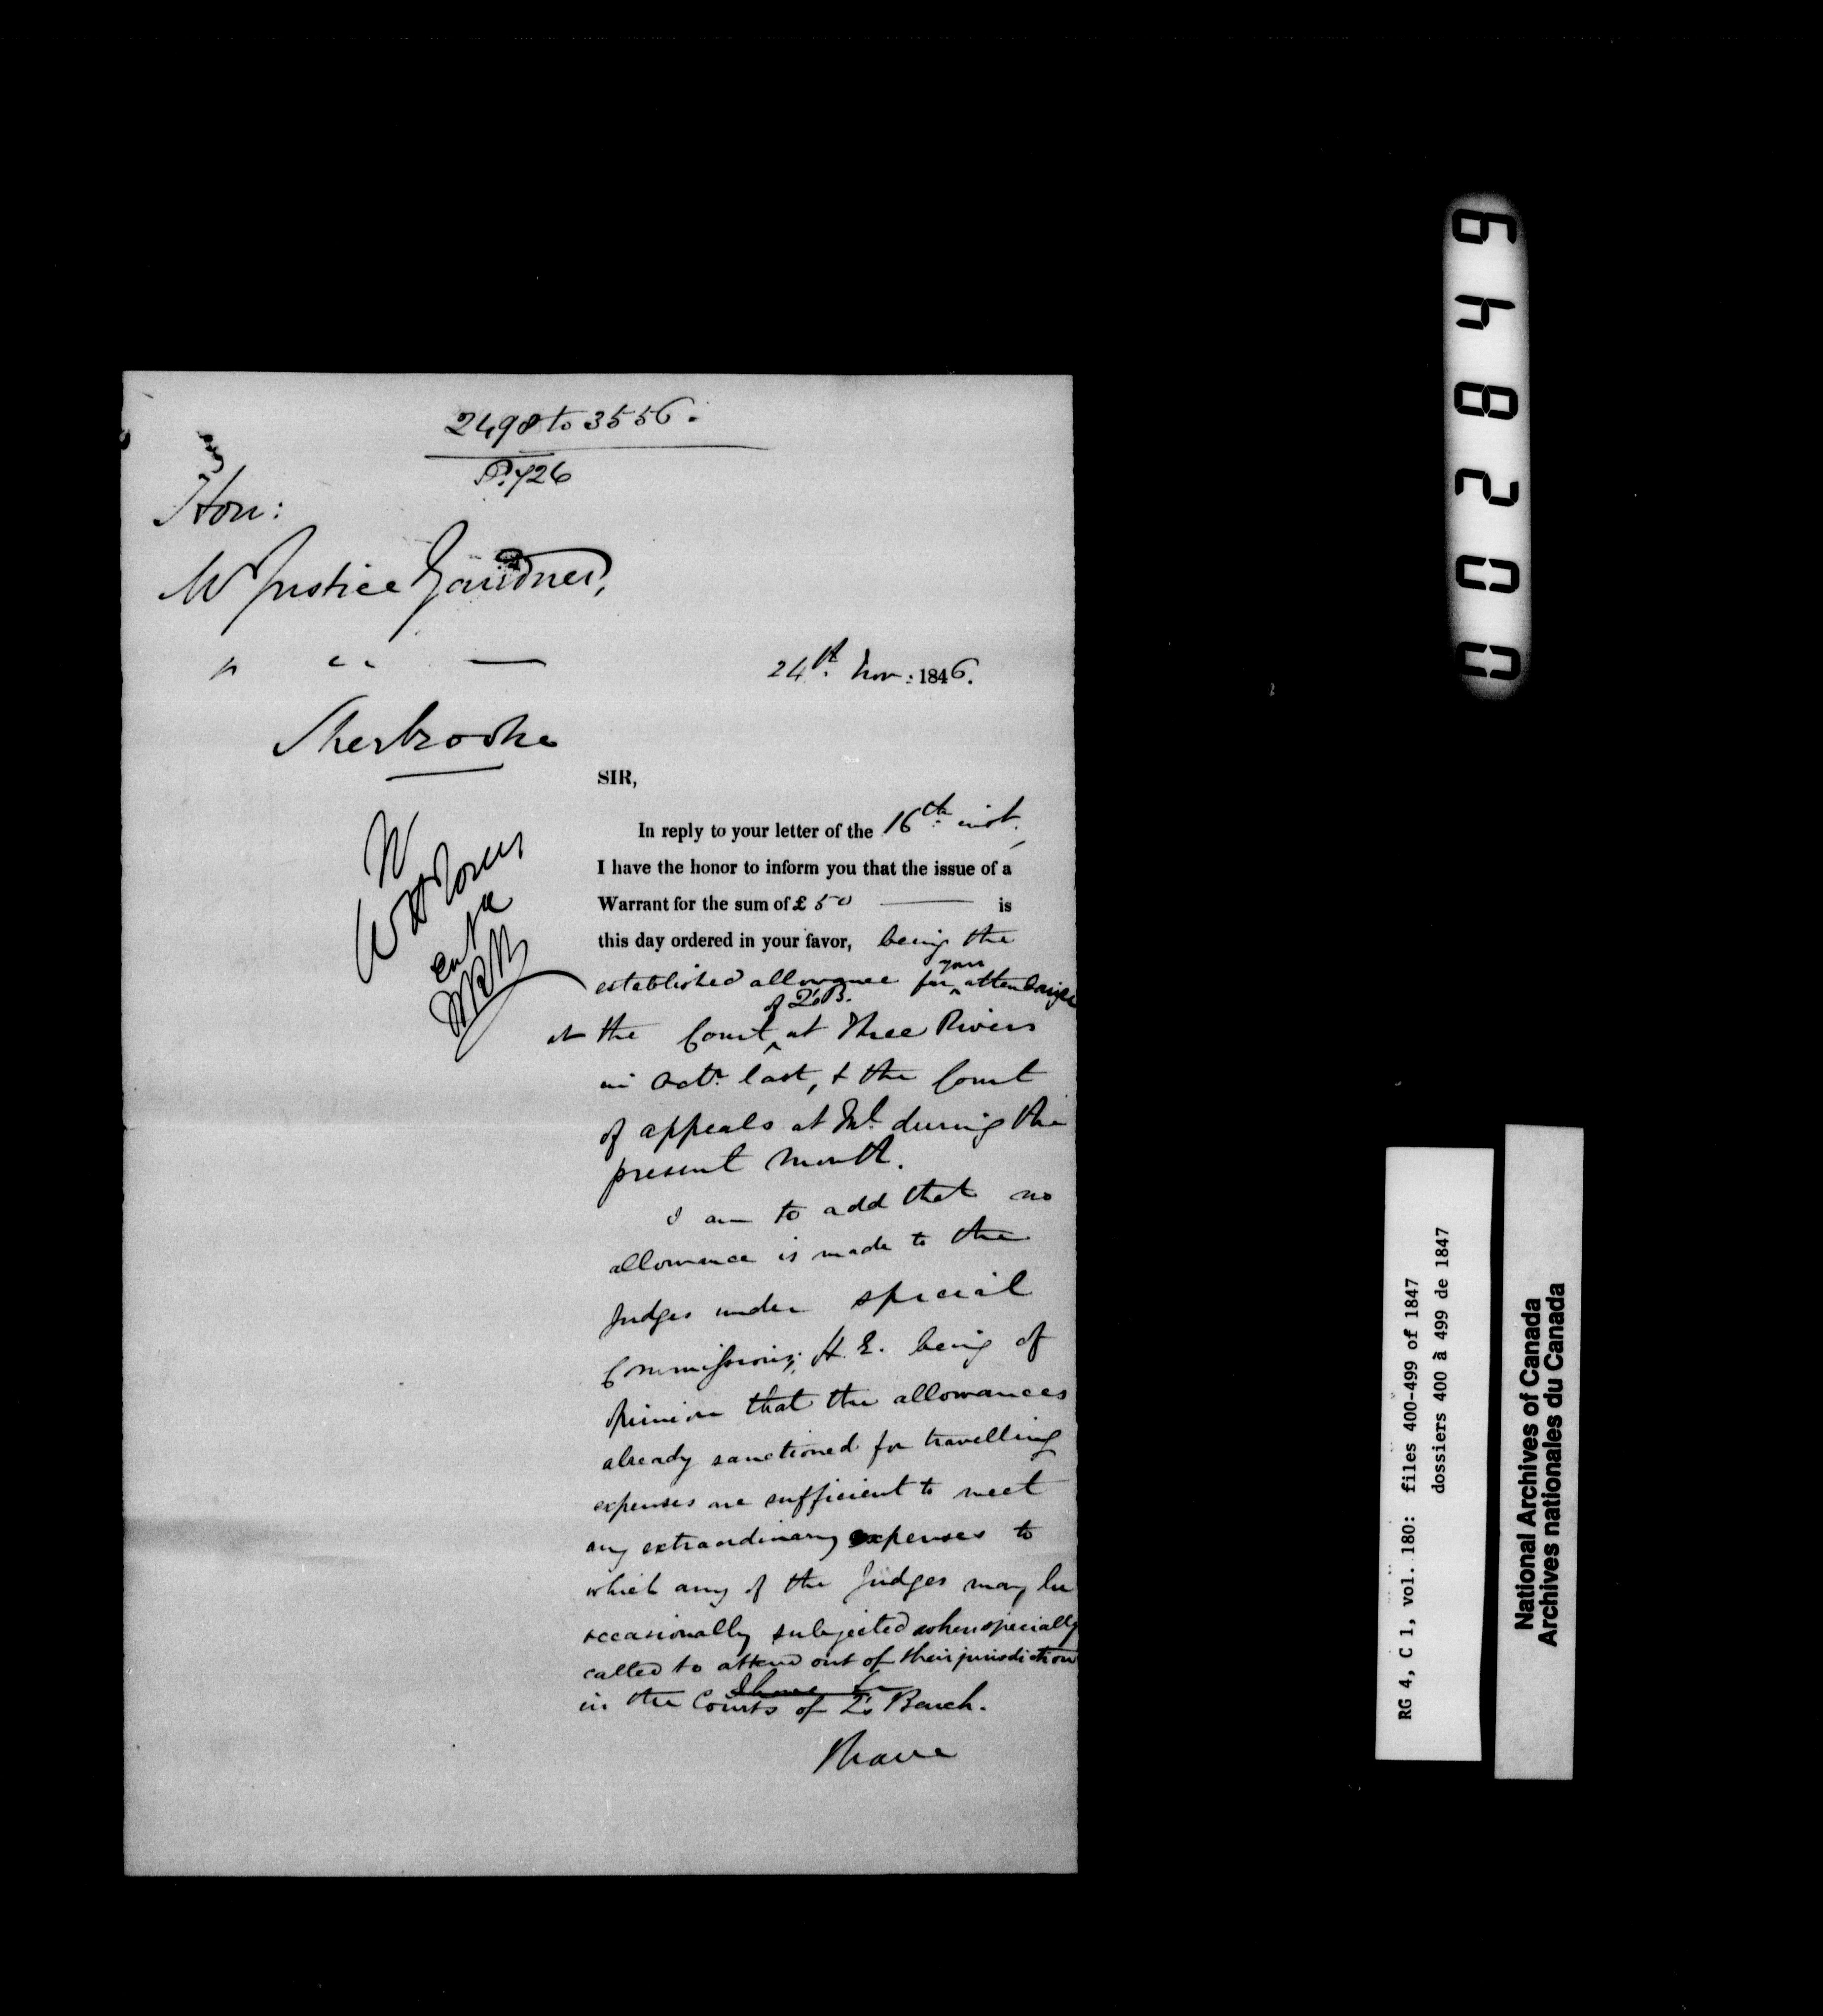 2498 to 3556.
P. 726
Hon:
Mr Justice Gairdner,
" " —
Sherbrooke
24th. Nov: 1846.
SIR,
In reply to your letter of the 16th. inst.
I have the honor to inform you that the issue of a
Warrant for the sum of £ 50 is
this day ordered in your favor, being the
established allowance for your attendance
at the Court of Q's B. at Three Rivers
in Octr. last, & the Court
of appeals at Ml. during the
present month.
I am to add that no
allowance is made to the
Judges under special
Commissions; H. E. being of
opinion that the allowances
already sanctioned for travelling
expenses are sufficient to meet
any extraordinary expenses to
which any of the Judges may be
occasionally subjected when specially
called to attend out of their jurisdiction
I have
in the Courts of Q's Bench.
I have
W
ent
006482849
RG 4, C 1, vol. 180: files 400-499 of 1847
dossiers 400 à 499 de 1847
National Archives of Canada
Archives nationales du Canada